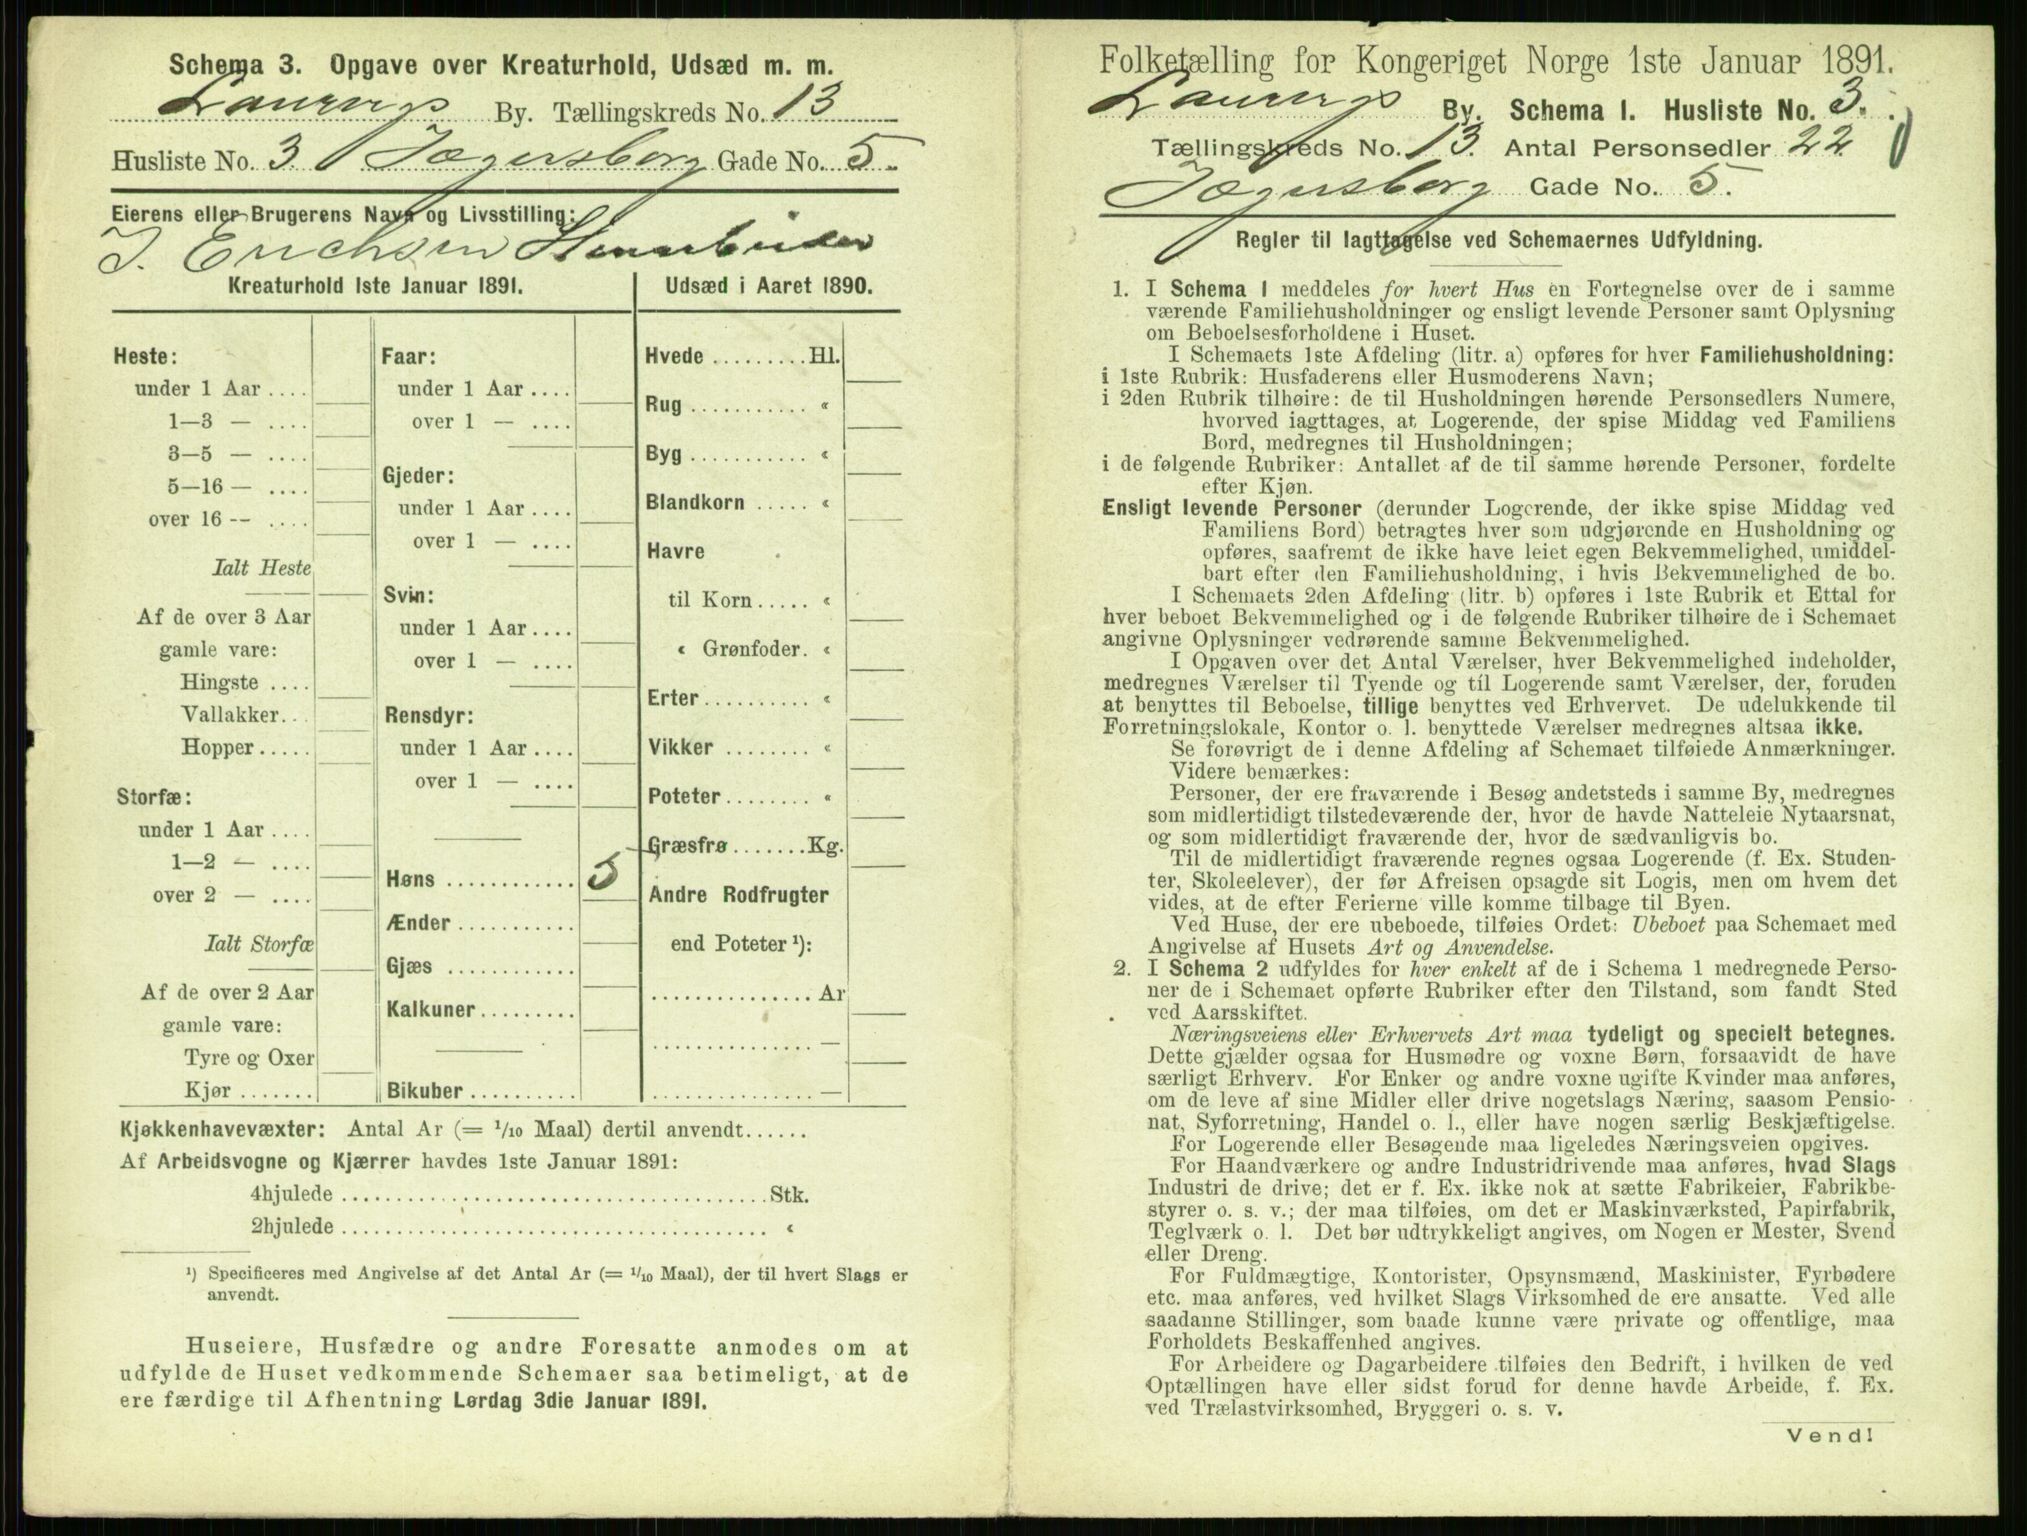 Schema 3. Opgave over Kreaturhold, Udsæd m. m.
Laurvigs By. Tællingskreds No. 13
Husliste No. 3 Jegersborg Gade No. 5.
Eierens eller Brugerens Navn og Livsstilling:
J. Erichsen
Kreaturhold 1ste Januar 1891.
Udsæd i Aaret 1890.
Heste:
under 1 Aar ....
1—3 — ....
3—5 — ....
5—16 — ....
over 16 -- ....
Ialt Heste
Af de over 3 Aar
gamle vare:
Hingste ....
Vallakker...
Hopper.....
Storfæ:
under 1 Aar ....
1—2 — ....
over 2 — ....
Ialt Storfæ
Af de over 2 Aar
gamle vare:
Tyre og Oxer
Kjør .......
Faar:
under 1 Aar ....
over 1 — ....
Gjeder:
under 1 Aar ....
over 1 — ....
Svin:
under 1 Aar ....
over 1 — ....
Rensdyr:
under 1 Aar ....
over 1 — ....
Høns ............ 5
Ænder ...........
Gjæs ............
Kalkuner.........
Bikuber ..........
Hvede .........Hl.
Rug ........... «
Byg ........... «
Blandkorn ..... «
Havre
til Korn..... «
« Grønfoder. «
Erter.......... «
Vikker ........ «
Poteter........ «
Græsfrø .......Kg.
Andre Rodfrugter
end Poteter ¹):
............... Ar
............... —
............... —
Kjøkkenhavevæxter: Antal Ar (= 1/10 Maal) dertil anvendt......
Af Arbeidsvogne og Kjærrer havdes 1ste Januar 1891:
4hjulede ........................................ Stk.
2hjulede ........................................ «
¹) Specificeres med Angivelse af det Antal Ar (= 1/10 Maal), der til hvert Slags er
anvendt.
Huseiere, Husfædre og andre Foresatte anmodes om at
udfylde de Huset vedkommende Schemaer saa betimeligt, at de
ere færdige til Afhentning Lørdag 3die Januar 1891.
Folketælling for Kongeriget Norge 1ste Januar 1891.
Laurvigs By. Schema 1. Husliste No. 3.
Tællingskreds No. 13. Antal Personsedler 22
Jegersborg Gade No. 5.
Regler til Iagttagelse ved Schemaernes Udfyldning.
1. I Schema 1 meddeles for hvert Hus en Fortegnelse over de i samme
værende Familiehusholdninger og ensligt levende Personer samt Oplysning
om Beboelsesforholdene i Huset.
I Schemaets 1ste Afdeling (litr. a) opføres for hver Familiehusholdning:
i 1ste Rubrik: Husfaderens eller Husmoderens Navn;
i 2den Rubrik tilhøire: de til Husholdningen hørende Personsedlers Numere,
hvorved iagttages, at Logerende, der spise Middag ved Familiens
Bord, medregnes til Husholdningen;
i de følgende Rubriker: Antallet af de til samme hørende Personer, fordelte
efter Kjøn.
Ensligt levende Personer (derunder Logerende, der ikke spise Middag ved
Familiens Bord) betragtes hver som udgjørende en Husholdning og
opføres, saafremt de ikke have leiet egen Bekvemmelighed, umiddel-
bart efter den Familiehusholdning, i hvis Bekvemmelighed de bo.
I Schemaets 2den Afdeling (litr. b) opføres i 1ste Rubrik et Ettal for
hver beboet Bekvemmelighed og i de følgende Rubriker tilhøire de i Schemaet
angivne Oplysninger vedrørende samme Bekvemmelighed.
I Opgaven over det Antal Værelser, hver Bekvemmelighed indeholder,
medregnes Værelser til Tyende og til Logerende samt Værelser, der, foruden
at benyttes til Beboelse, tillige benyttes ved Erhvervet. De udelukkende til
Forretningslokale, Kontor o. l. benyttede Værelser medregnes altsaa ikke.
Se forøvrigt de i denne Afdeling af Schemaet tilføiede Anmærkninger.
Videre bemærkes:
Personer, der ere fraværende i Besøg andetsteds i samme By, medregnes
som midlertidigt tilstedeværende der, hvor de havde Natteleie Nytaarsnat,
og som midlertidigt fraværende der, hvor de sædvanligvis bo.
Til de midlertidigt fraværende regnes ogsaa Logerende (f. Ex. Studen-
ter, Skoleelever), der før Afreisen opsagde sit Logis, men om hvem det
vides, at de efter Ferierne ville komme tilbage til Byen.
Ved Huse, der ere ubeboede, tilføies Ordet: Ubeboet paa Schemaet med
Angivelse af Husets Art og Anvendelse.
2. I Schema 2 udfyldes for hver enkelt af de i Schema 1 medregnede Perso-
ner de i Schemaet opførte Rubriker efter den Tilstand, som fandt Sted
ved Aarsskiftet.
Næringsveiens eller Erhvervets Art maa tydeligt og specielt betegnes.
Dette gjælder ogsaa for Husmødre og voxne Børn, forsaavidt de have
særligt Erhverv. For Enker og andre voxne ugifte Kvinder maa anføres,
om de leve af sine Midler eller drive nogetslags Næring, saasom Pensio-
nat, Syforretning, Handel o. l., eller have nogen særlig Beskjæftigelse.
For Logerende eller Besøgende maa ligeledes Næringsveien opgives.
For Haandværkere og andre Industridrivende maa anføres, hvad Slags
Industri de drive; det er f. Ex. ikke nok at sætte Fabrikeier, Fabrikbe-
styrer o. s. v.; der maa tilføies, om det er Maskinværksted, Papirfabrik,
Teglværk o. l. Det bør udtrykkeligt angives, om Nogen er Mester, Svend
eller Dreng.
For Fuldmægtige, Kontorister, Opsynsmænd, Maskinister, Fyrbødere
etc. maa anføres, ved hvilket Slags Virksomhed de ere ansatte. Ved alle
saadanne Stillinger, som baade kunne være private og offentlige, maa
Forholdets Beskaffenhed angives.
For Arbeidere og Dagarbeidere tilføies den Bedrift, i hvilken de ved
Optællingen have eller sidst forud for denne havde Arbeide, f. Ex.
ved Trælastvirksomhed, Bryggeri o. s. v.
Vend!